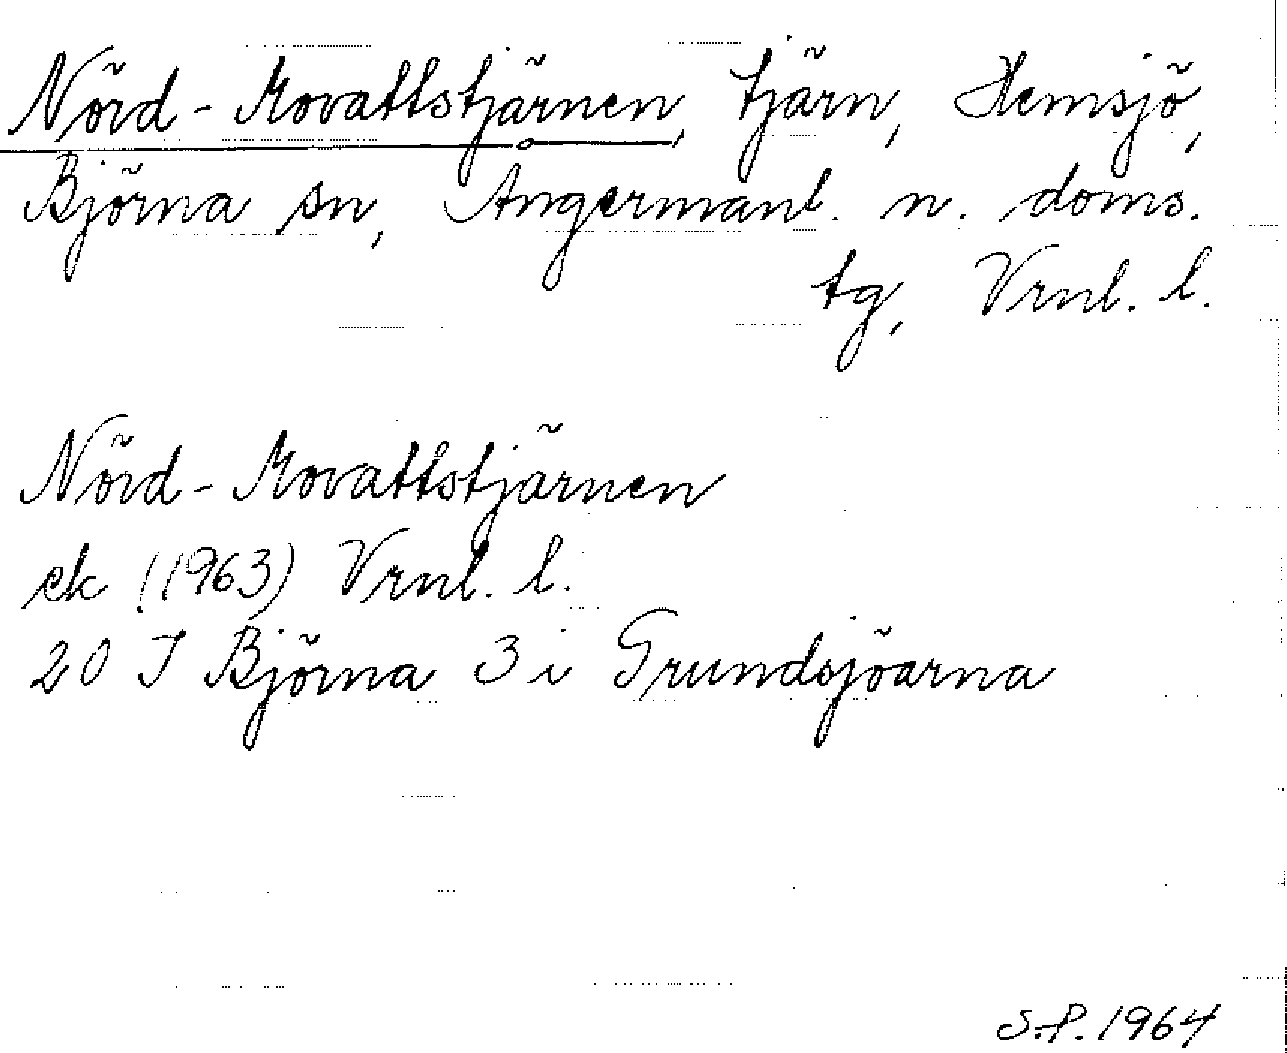 Nörd-Movattstjärnen, tjärn, Hemsjö,
Björna sn, Ångermanl. n. doms.
tg, Vrnl. l.
Nörd-Movattstjärnen
ek (1963) Vrnl. l.
20 J Björna 3 i Grundsjöarna
S.P. 1964